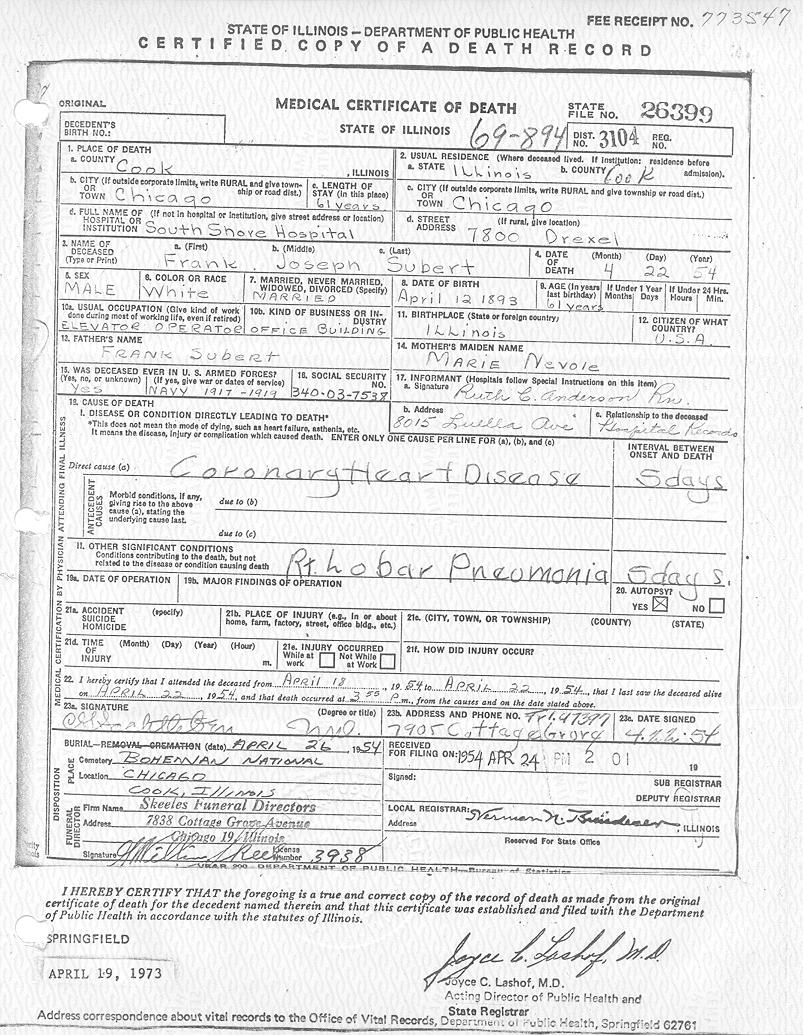 FEE RECEIPT NO. 773547
STATE OF ILLINOIS — DEPARTMENT OF PUBLIC HEALTH
CERTIFIED COPY OF A DEATH RECORD
ORIGINAL
MEDICAL CERTIFICATE OF DEATH
STATE FILE NO. 26399
DECEDENT'S BIRTH NO.:
STATE OF ILLINOIS
69-894
DIST. NO. 3104 REG. NO.
1. PLACE OF DEATH
a. COUNTY Cook, ILLINOIS
2. USUAL RESIDENCE (Where deceased lived. If institution: residence before admission).
a. STATE Illinois b. COUNTY Cook
b. CITY (If outside corporate limits, write RURAL and give township or road dist.) OR TOWN Chicago
c. LENGTH OF STAY (in this place) 61 years
c. CITY (If outside corporate limits, write RURAL and give township or road dist.) OR TOWN Chicago
d. FULL NAME OF HOSPITAL OR INSTITUTION (If not in hospital or institution, give street address or location) South Shore Hospital
d. STREET ADDRESS (If rural, give location) 7800 Drexel
3. NAME OF DECEASED (Type or Print) a. (First) b. (Middle) c. (Last)
Frank Joseph Subert
4. DATE OF DEATH (Month) (Day) (Year)
4 22 54
5. SEX MALE
6. COLOR OR RACE White
7. MARRIED, NEVER MARRIED, WIDOWED, DIVORCED (Specify) MARRIED
8. DATE OF BIRTH April 12 1893
9. AGE (In years last birthday) 61 years
If Under 1 Year Months Days
If Under 24 Hrs. Hours Min.
10a. USUAL OCCUPATION (Give kind of work done during most of working life, even if retired) ELEVATOR OPERATOR
10b. KIND OF BUSINESS OR INDUSTRY OFFICE BUILDING
11. BIRTHPLACE (State or foreign country) Illinois
12. CITIZEN OF WHAT COUNTRY? U.S.A.
13. FATHER'S NAME FRANK Subert
14. MOTHER'S MAIDEN NAME MARIE Nevole
15. WAS DECEASED EVER IN U. S. ARMED FORCES? (Yes, no, or unknown) (If yes, give war or dates of service) Yes NAVY 1917-1919
16. SOCIAL SECURITY NO. 340-03-7538
17. INFORMANT (Hospitals follow Special Instructions on this item)
a. Signature Ruth C. Anderson Rn.
b. Address 8015 Luella Ave
c. Relationship to the deceased Hospital Records
18. CAUSE OF DEATH
I. DISEASE OR CONDITION DIRECTLY LEADING TO DEATH*
*This does not mean the mode of dying, such as heart failure, asthenia, etc. It means the disease, injury or complication which caused death.
ENTER ONLY ONE CAUSE PER LINE FOR (a), (b), and (c)
INTERVAL BETWEEN ONSET AND DEATH
Direct cause (a) Coronary Heart Disease 5 days
ANTECEDENT CAUSES
Morbid conditions, if any, giving rise to the above cause (a), stating the underlying cause last.
due to (b)
due to (c)
II. OTHER SIGNIFICANT CONDITIONS
Conditions contributing to the death, but not related to the disease or condition causing death
Rt. Lobar Pneumonia 5 days.
19a. DATE OF OPERATION
19b. MAJOR FINDINGS OF OPERATION
20. AUTOPSY? YES ☒ NO ☐
21a. ACCIDENT SUICIDE HOMICIDE (specify)
21b. PLACE OF INJURY (e.g., in or about home, farm, factory, street, office bldg., etc.)
21c. (CITY, TOWN, OR TOWNSHIP) (COUNTY) (STATE)
21d. TIME OF INJURY (Month) (Day) (Year) (Hour) m.
21e. INJURY OCCURRED While at work ☐ Not While at Work ☐
21f. HOW DID INJURY OCCUR?
22. I hereby certify that I attended the deceased from APRIL 18, 1954 to APRIL 22, 1954, that I last saw the deceased alive
on APRIL 22, 1954, and that death occurred at 3 55 P m., from the causes and on the date stated above.
MEDICAL CERTIFICATION BY PHYSICIAN ATTENDING FINAL ILLNESS
23a. SIGNATURE (Degree or title) M.D.
23b. ADDRESS AND PHONE NO. 7905 Cottage Grove
23c. DATE SIGNED 4.22.54
DISPOSITION
PLACE
BURIAL—REMOVAL—CREMATION (date) APRIL 26, 1954
Cemetery BOHEMIAN NATIONAL
Location CHICAGO
COOK, ILLINOIS
RECEIVED FOR FILING ON: 1954 APR 24 PM 2 01 19
Signed:
SUB REGISTRAR
DEPUTY REGISTRAR
FUNERAL DIRECTOR
Firm Name Skeeles Funeral Directors
Address 7838 Cottage Grove Avenue
Chicago 19, Illinois
Signature License Number 3938
LOCAL REGISTRAR:
Address , ILLINOIS
Reserved For State Office
DEPARTMENT OF PUBLIC HEALTH—Bureau of Statistics
I HEREBY CERTIFY THAT the foregoing is a true and correct copy of the record of death as made from the original
certificate of death for the decedent named therein and that this certificate was established and filed with the Department
of Public Health in accordance with the statutes of Illinois.
SPRINGFIELD
APRIL 19, 1973
Joyce C. Lashof, M.D.
Joyce C. Lashof, M.D.
Acting Director of Public Health and
State Registrar
Address correspondence about vital records to the Office of Vital Records, Department of Public Health, Springfield 62761